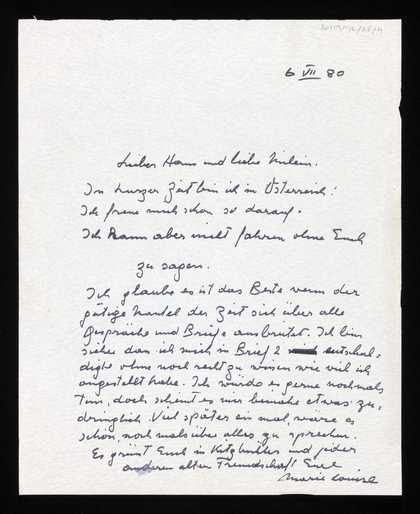 6 VII 80
Lieber Hans und liebe
In kurzer Zeit bin ich in Österreich!
Ich freue mich schon so darauf.
Ich kann aber nicht fahren ohne Euch
zu sagen.
Ich glaube es ist das Beste wenn der
gütige Mantel der Zeit sich über alle
Gespräche und Briefe ausbreitet. Ich bin
sicher dass ich mich in Brief 2 entschul-
digte ohne noch recht zu wissen wie viel ich
angestellt habe. Ich würde es gerne nochmals
tun, doch scheint es mir beinahe etwas zu-
dringlich. Viel später einmal, wäre es
schön, nochmals über alles zu sprechen.
Es grüsst Euch in Kitzbühel und jeder
anderen alter Freundschaft Eure
Marie Louise